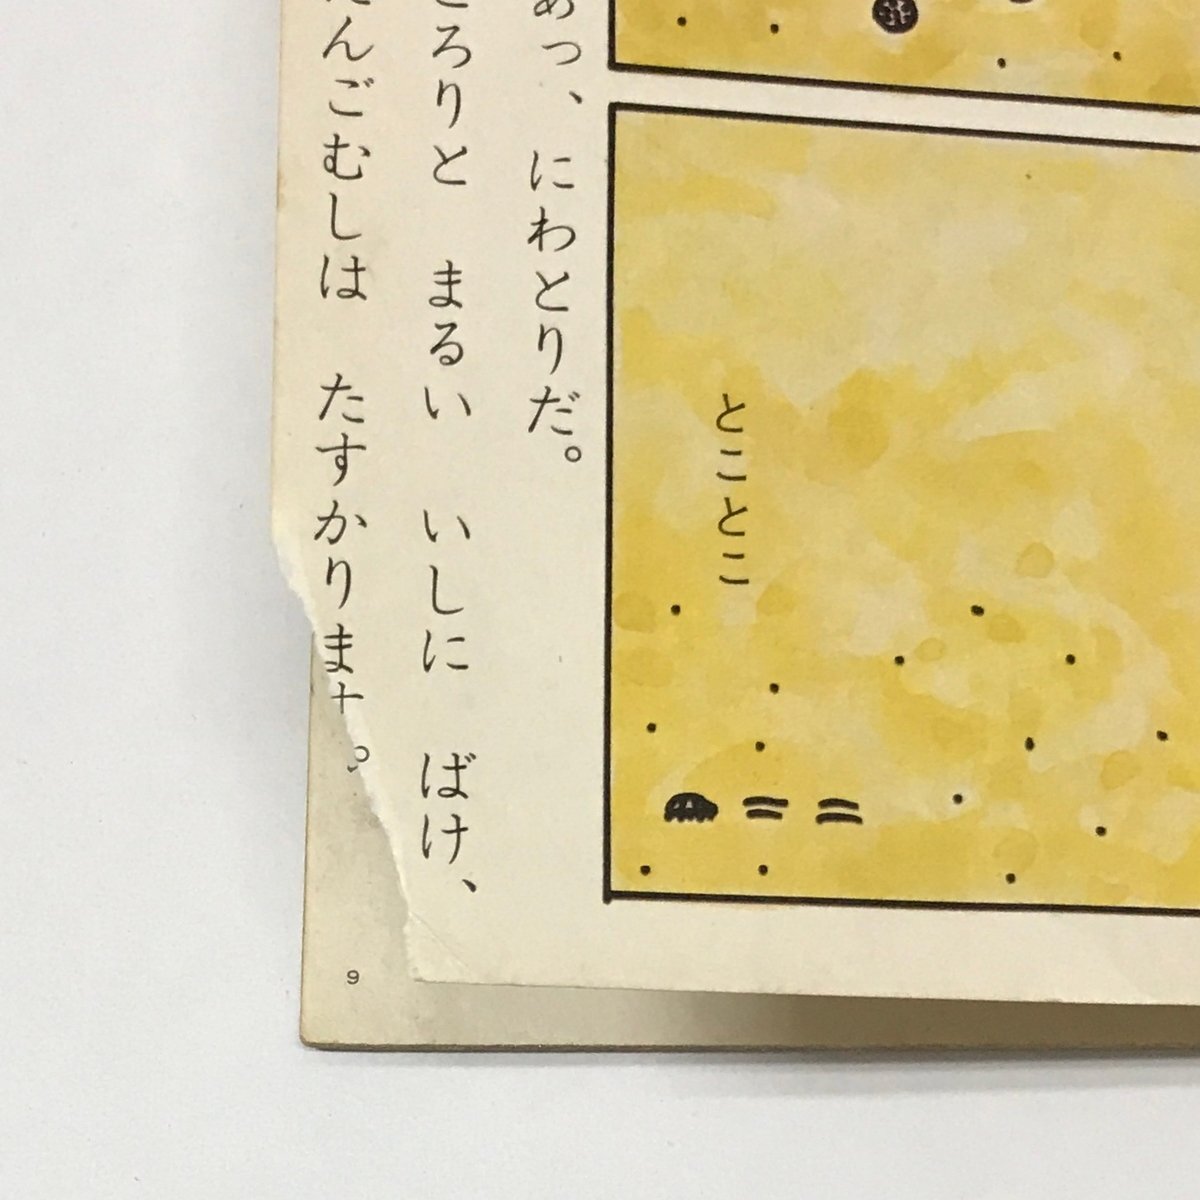 あっ、 にわとりだ。
ころりと まるい いしに ばけ、
だんごむしは たすかります。
とことこ
9